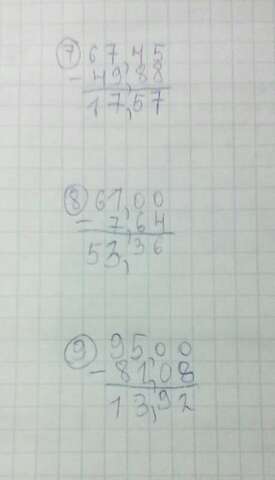 ⑦ 67,45
- 49,88
17,57
⑧ 61,00
- 7,64
53,36
⑨ 95,00
- 81,08
13,92